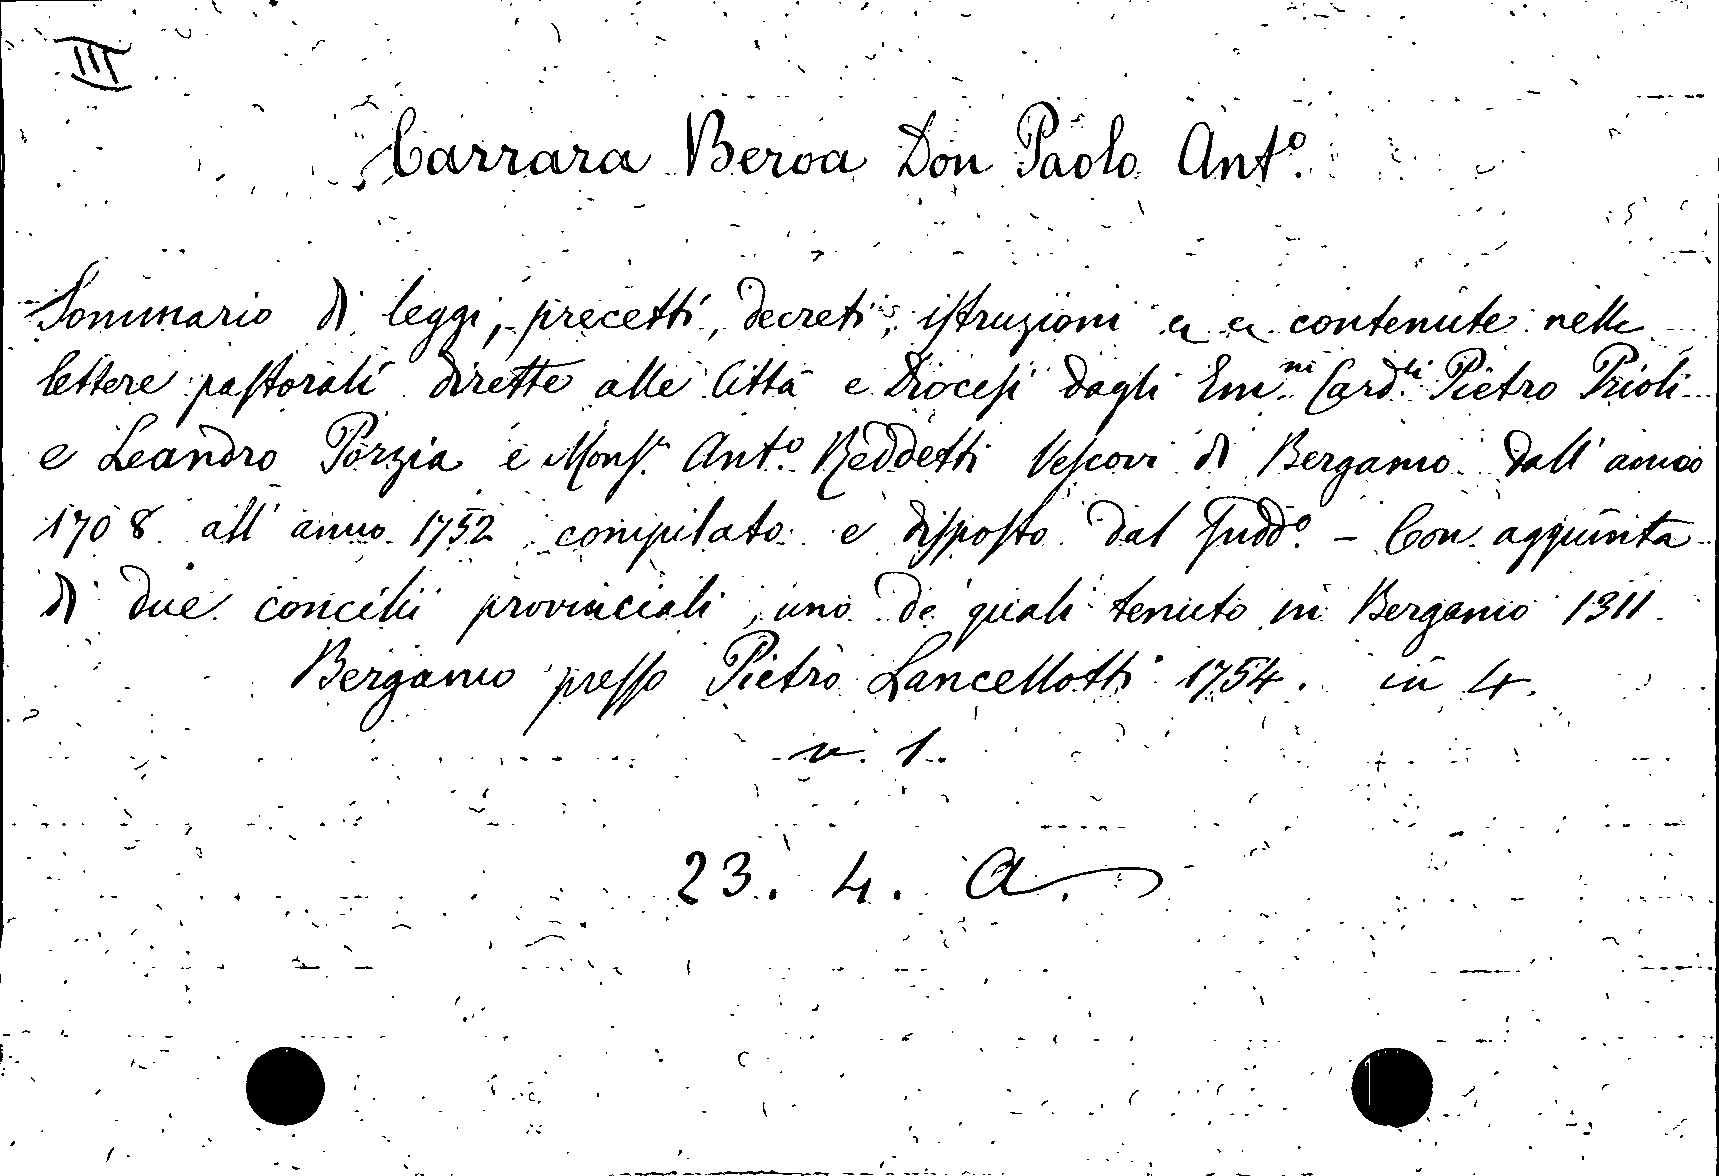 III
Carrara Beroa Don Paolo Ant.º
Sommario di leggi, precetti, decreti, istruzioni contenute nelle
lettere pastorali dirette alle Città e Diocesi dagli Em.ni Card.li Pietro Prioli
e Leandro Porzia e Mons.r Ant.º Reddetti Vescovi di Bergamo dall' anno
1708 all' anno 1752 compilato e disposto dal sudd.º - Con aggiunta
di due concilii provinciali, uno de' quali tenuto in Bergamo 1311.
Bergamo presso Pietro Lancellotti 1754. in 4.
v. 1.
23. 4. A.